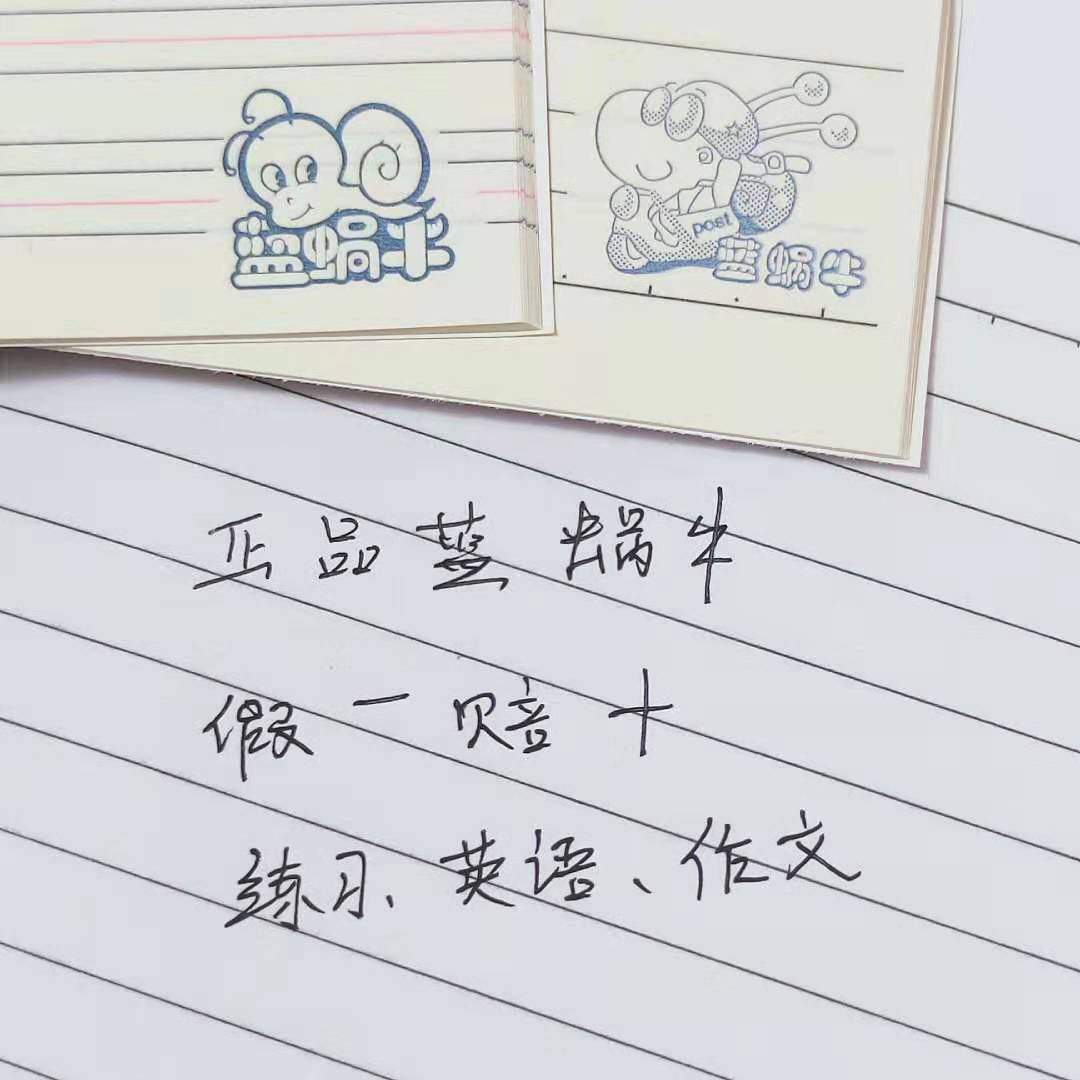 蓝蜗牛
post
蓝蜗牛
正品蓝蜗牛
假一赔十
练习、英语、作文